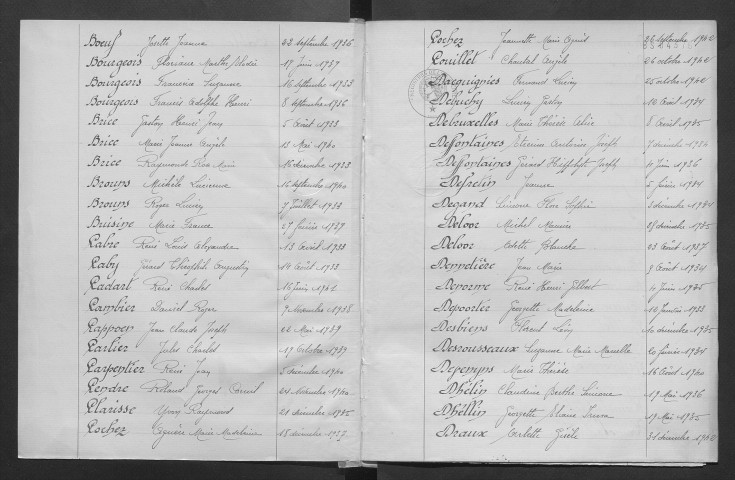 Boeuf Josette Jeanne 23 septembre 1936
Bourgeois Floriane Marthe 17 juin 1937
Bourgeois Francine Suzanne 16 septembre 1933
Bourgeois Francis Adolphe Henri 8 septembre 1936
Brice Gaston Henri 5 Août 1933
Brice Marie Jeanne Angèle 13 Mai 1940
Brice Raymonde Marie 16 décembre 1933
Brouns Michèle Lucienne 16 septembre 1940
Brouns Roger 9 juillet 1933
Buisine Marie France 27 février 1939
Cabre René Louis Alexandre 13 Avril 1933
Caby Gérard Théophile Augustin 14 Août 1933
Cadart René Charles 16 juin 1942
Cambier Daniel Roger 9 décembre 1938
Cappoen Jean Claude Joseph 22 Mai 1939
Carlier Jules Charles 19 Octobre 1939
Carpentier Rémi 5 décembre 1940
Cendre Roland Georges 24 novembre 1940
Clarisse Yvon Raymond 21 décembre 1935
Cochez Agnès Marie Madeleine 18 décembre 1937
Cochez Jeannette Marie Agnès 26 septembre 1942
Couillet Chantal Angèle 26 octobre 1942
Dacquignies Fernand 25 octobre 1942
Debuchy 10 Août 1934
Debruxelles Marie Thérèse 8 Avril 1935
Deffontaines Etienne Joseph 7 décembre 1936
Deffontaines Gérard Joseph 4 juin 1936
Defrelin Jeanne 5 février 1934
Degand Simone Flore 3 décembre 1934
Deloor Michel Maurice 28 décembre 1935
Deloor Odette Blanche 23 Août 1937
Jean Marie 9 Août 1934
Denorme René Henri Gilbert 4 juin 1935
Deportère Georgette Madeleine 10 1933
Desbiens Florent 10 décembre 1935
Desrousseaux Suzanne Marie Marcelle 20 février 1934
Marie Thérèse 16 Août 1940
Dhélin Claudine Berthe Simone 17 Mai 1936
Dhéllin Georgette 19 Mai 1935
Draux Arlette Gisèle 31 décembre 1942